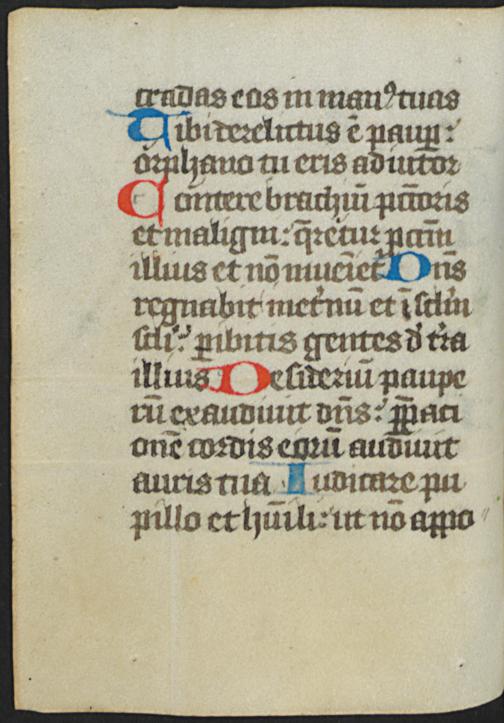 tradas eos in manꝰ tuas
Tibi derelictus ē paup̄:
orphano tu eris adiutor
Contere brachiū pctōris
et maligni: q̄retur pctm̄
illius et nō inueniet̄ Dn̄s
regnabit inet̄nū et ī sclm̄
scli: ꝑibitis gentes d̓ tr̄a
illius Desideriū paupe
rū exaudiuit dn̄s: p̄paci
onē cordis eorū audiuit
auris tua Iudicare pu
pillo et hūili: ut nō appo